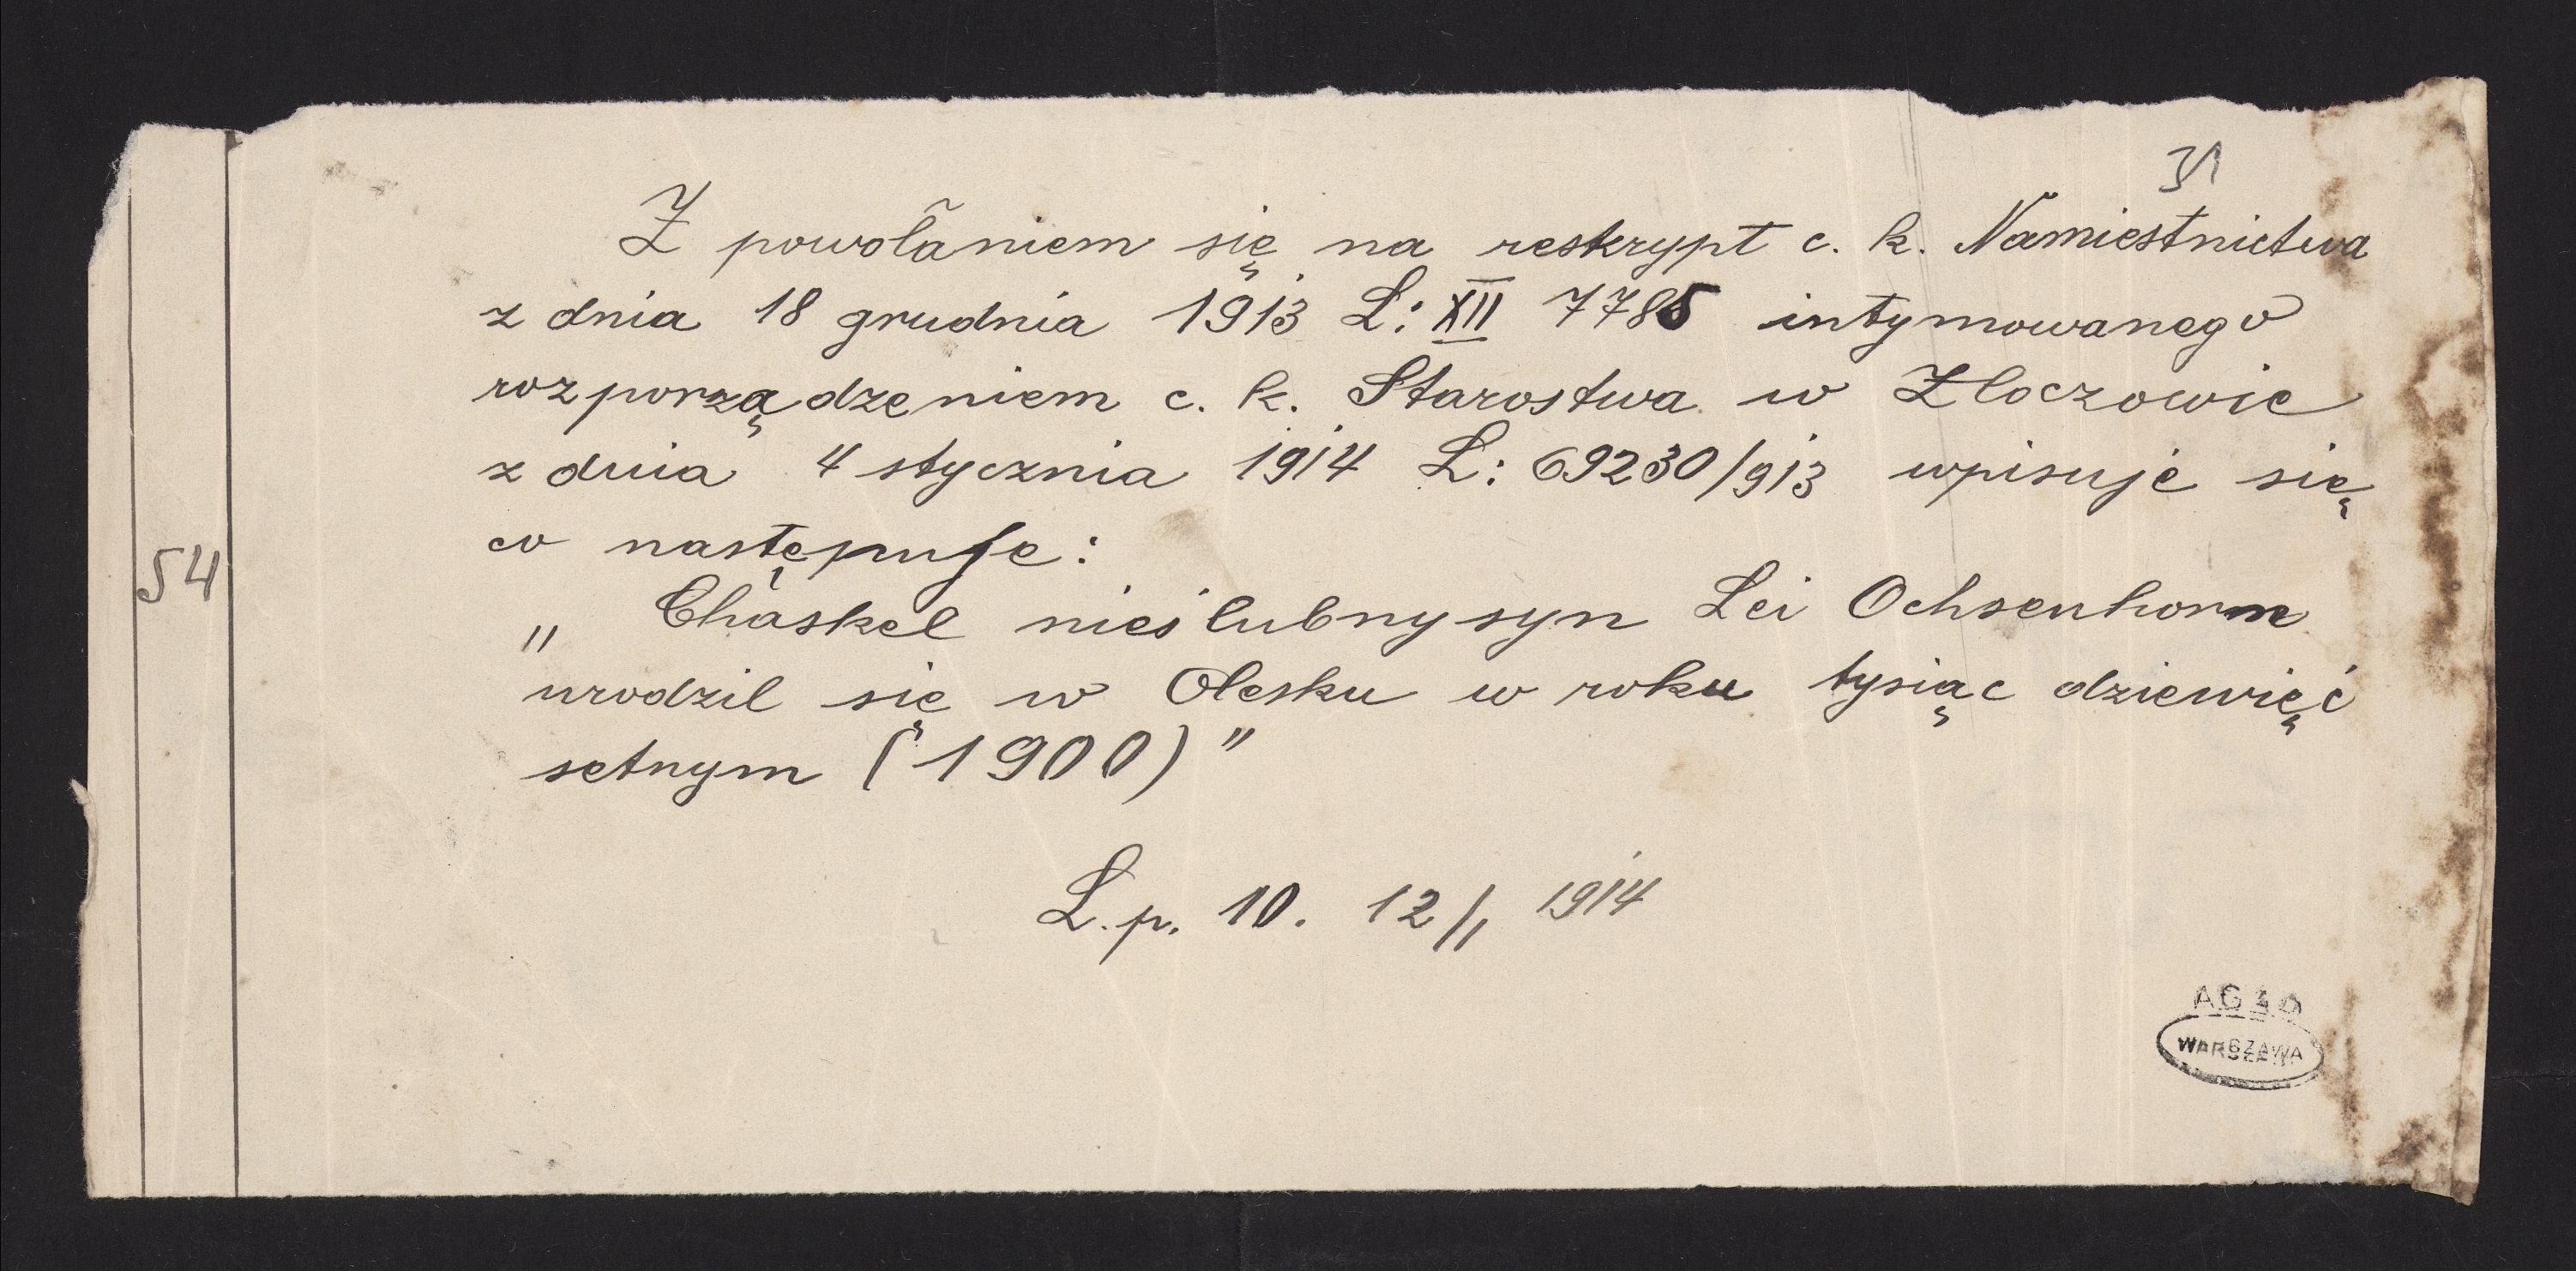 31
Z powołaniem się na reskrypt c. k. Namiestnictwa
z dnia 18 grudnia 1913 L: XII 7785 intymowanego
rozporządzeniem c. k. Starostwa w Zloczowie
z dnia 4 stycznia 1914 L: 69230/913 wpisuje się
co następuje:
54
„ Chaskel nieślubny syn Lei Ochsenhorn
urodzil się w Olesku w roku tysiąc dziewięć
setnym (1900)"
L. p. 10. 12/1 1914
AGAD
WARSZAWA